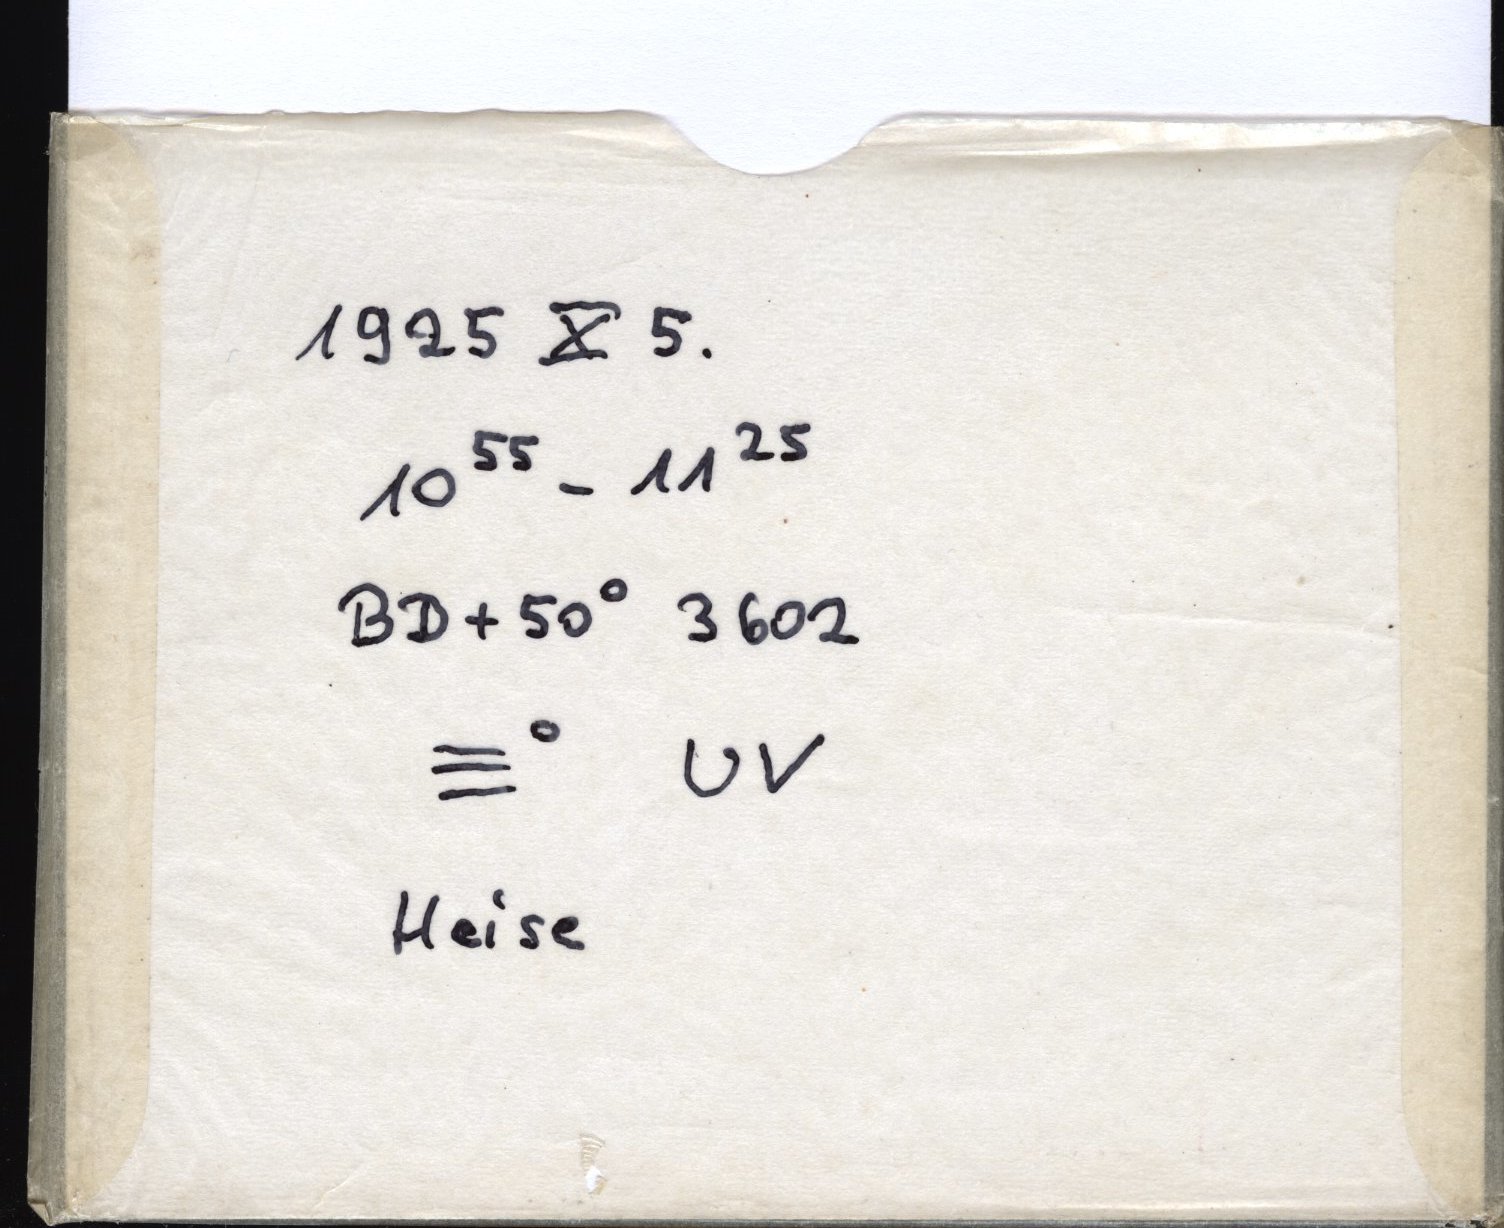 1925 X 5.
10⁵⁵ - 11²⁵
BD+50° 3602
≡° UV
Heise